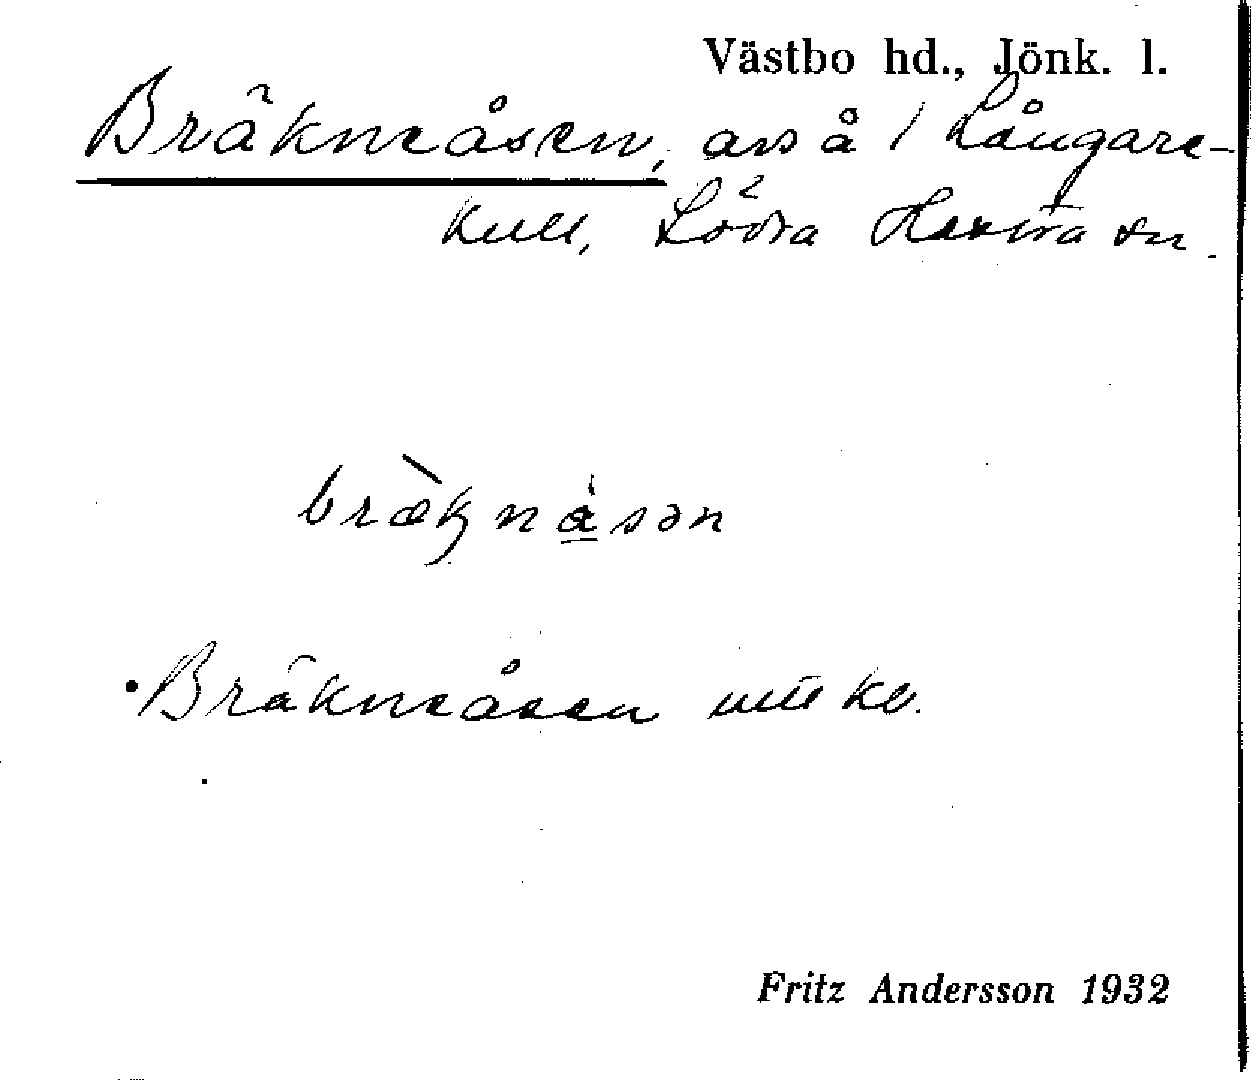 Västbo hd., Jönk. l.
Bräkneåsen, avs å 1 Långare-
kull, Södra Hestra sn.
bræ̀knåsən
Bräkneåsen utt kv.
Fritz Andersson 1932